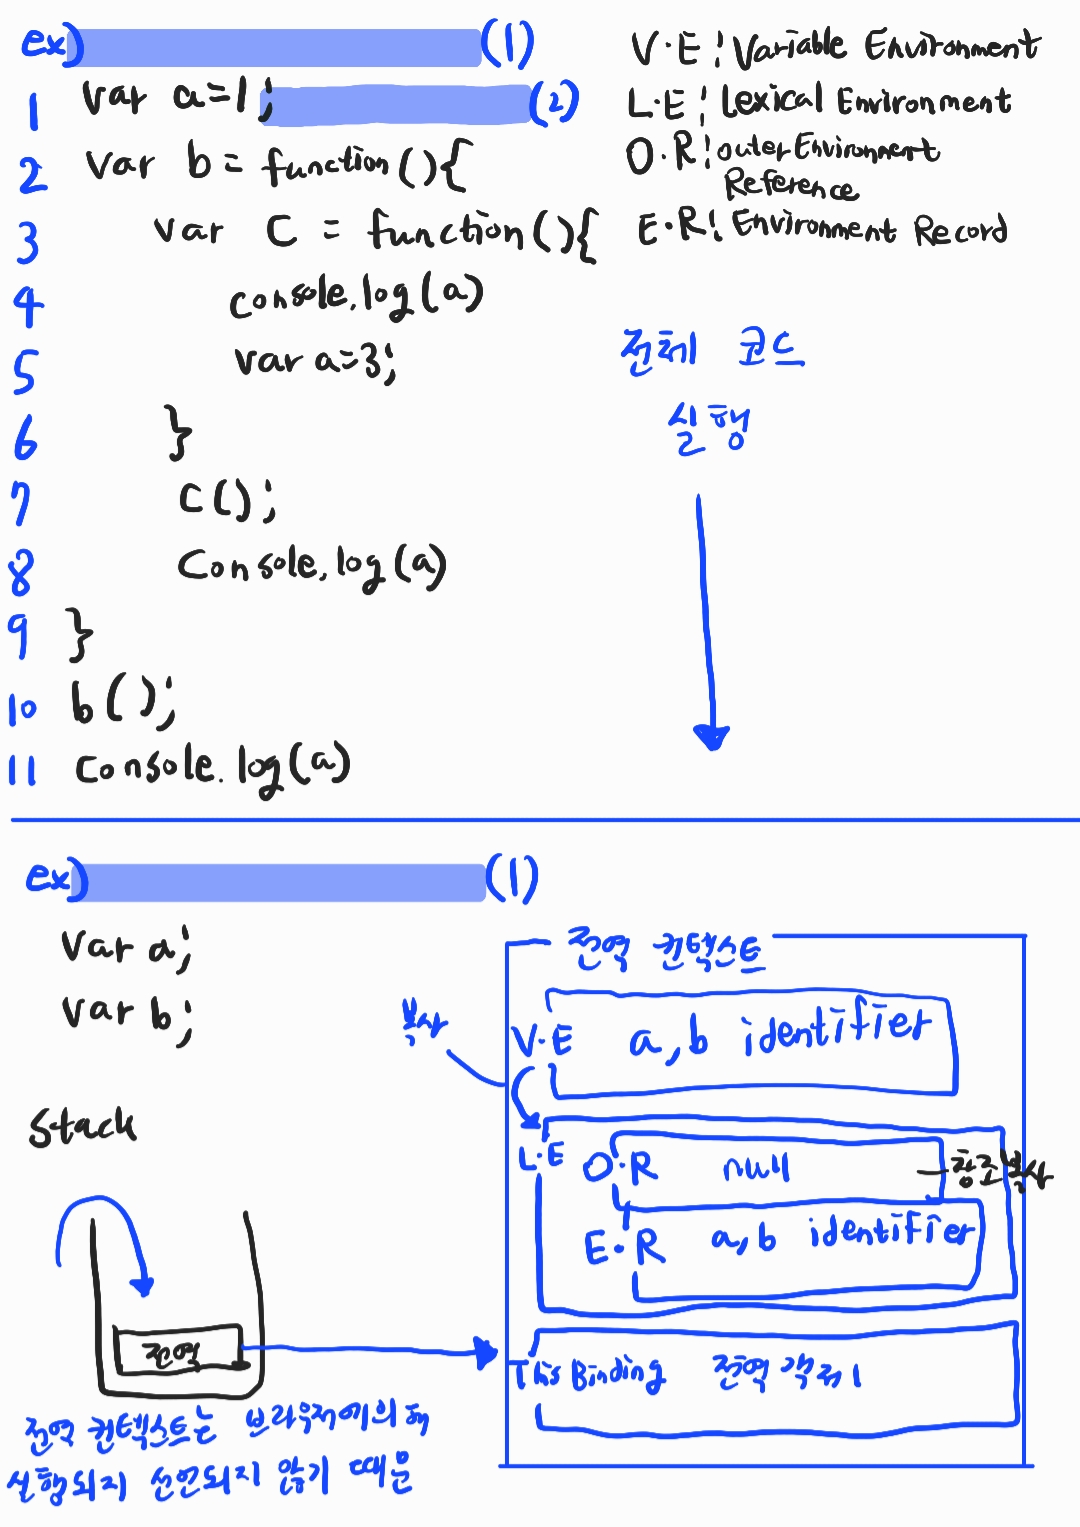 ex) (1)
1 var a=1; (2)
2 var b = function(){
3 var c = function(){
4 console.log(a)
5 var a=3;
6 }
7 c();
8 console.log(a)
9 }
10 b();
11 console.log(a)
V·E : Variable Environment
L·E : Lexical Environment
O·R : outer Environment
Reference
E·R : Environment Record
전체 코드
실행
ex) (1)
var a;
var b;
stack
전역
전역 컨텍스트는 브라우저에의해
실행되지 선언되지 않기 때문
전역 컨텍스트
복사
V·E a, b identifier
L·E O·R null 참조 복사
E·R a, b identifier
This Binding 전역 객체